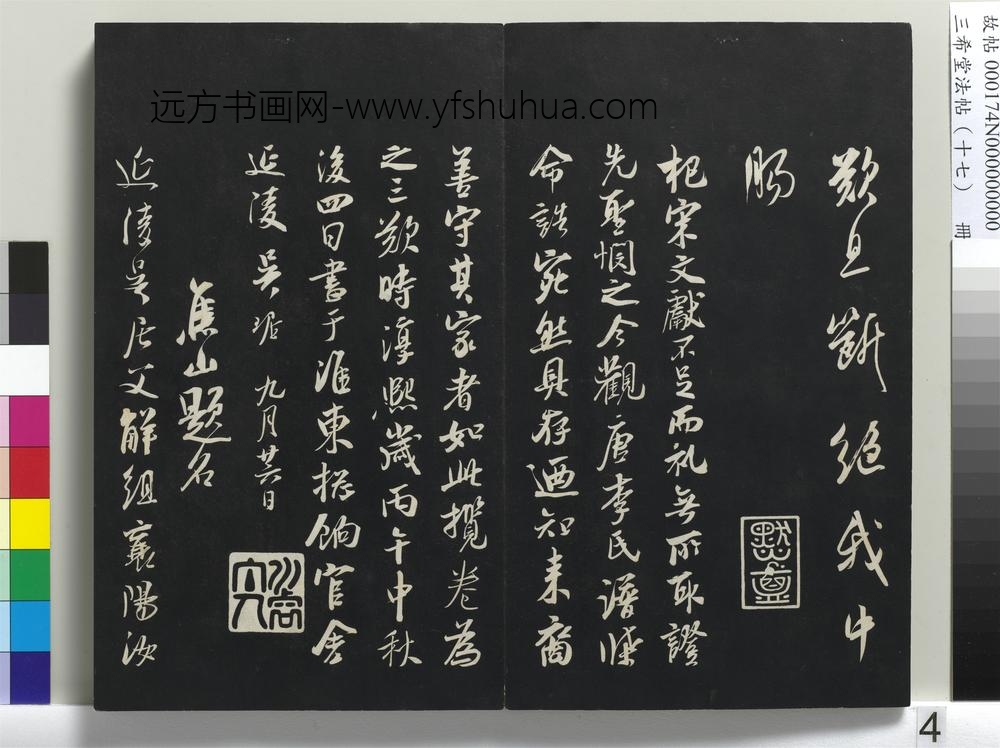 故帖 000174N000000000
三希堂法帖（十七） 冊
远方书画网-www.yfshuhua.com
歎且斷絕我中
腸
杞宋文獻不足而礼無所取證
先聖憫之今觀唐李氏譜牒
命誥宛然具存迺知来裔
善守其家者如此攬卷為
之三歎時淳熙歲丙午中秋
後四日書于淮東揔餉官舍
延陵吴琚 九月廿六日
焦山題名
延陵吴居父解組襄陽汝
4